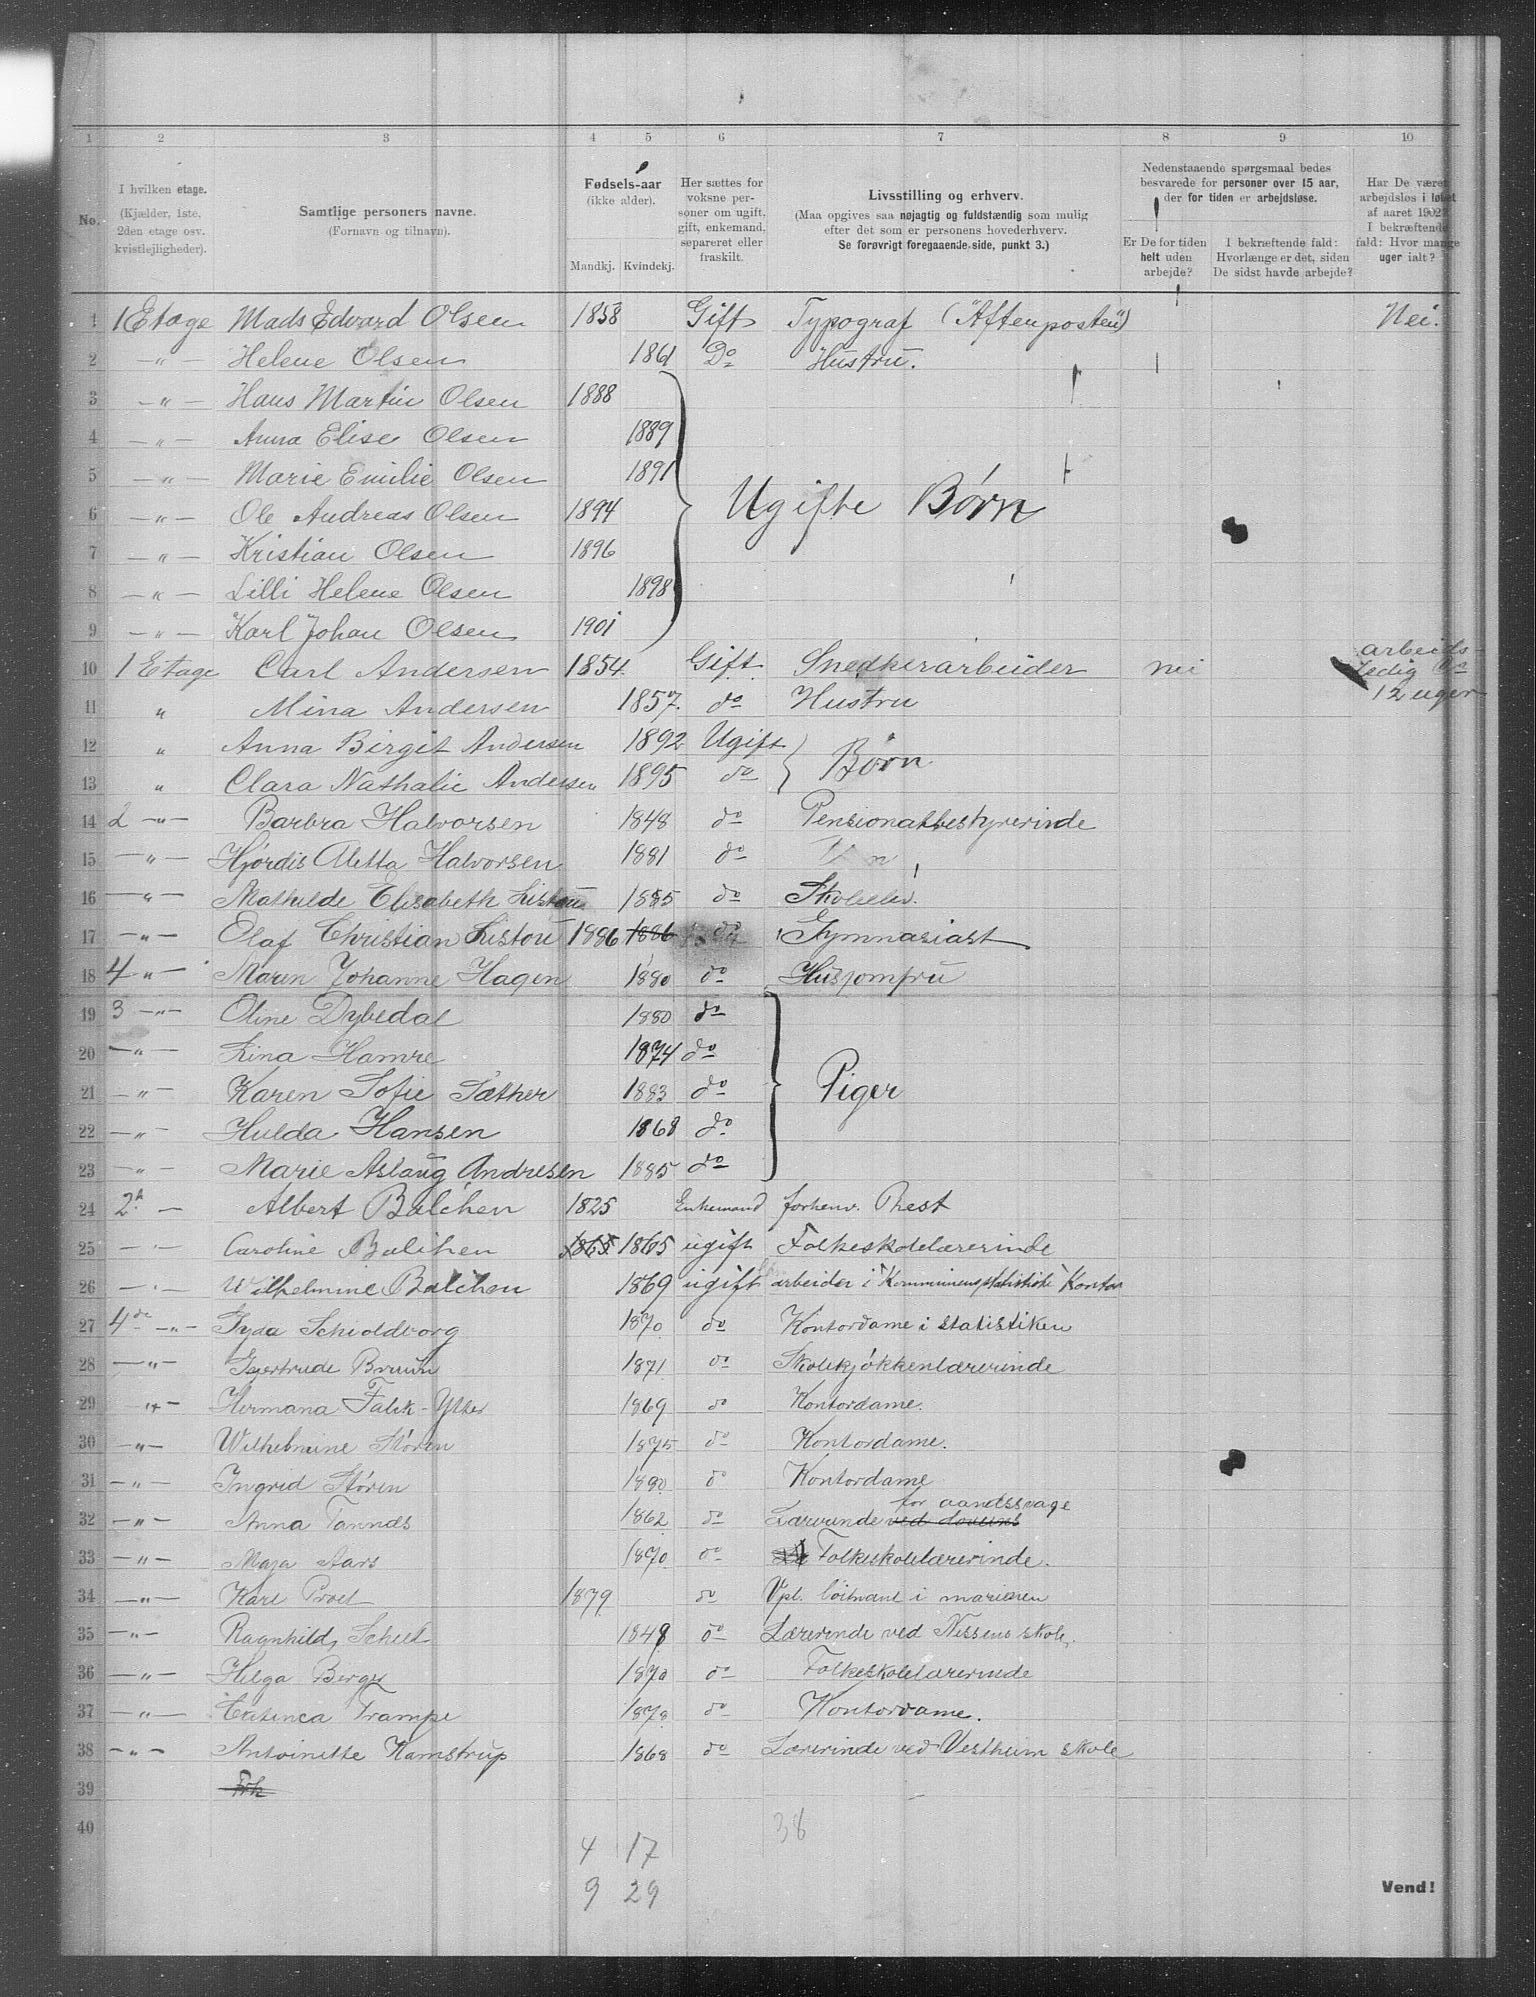 1 2 3 4 5 6 7 8 9 10
No.
I hvilken etage.
(Kjælder, 1ste,
2den etage osv.
kvistlejligheder).
Samtlige personers navne.
(Fornavn og tilnavn).
Fødsels-aar
(ikke alder).
Mandkj. Kvindekj.
Her sættes for
voksne per-
soner om ugift,
gift, enkemand,
separeret eller
fraskilt.
Livsstilling og erhverv.
(Maa opgives saa nøjagtig og fuldstændig som mulig
efter det som er personens hovederhverv.
Se forøvrigt foregaaende side, punkt 3.)
Nedenstaaende spørgsmaal bedes
besvarede for personer over 15 aar,
der for tiden er arbejdsløse.
Er De for tiden
helt uden
arbejde?
I bekræftende fald:
Hvorlænge er det, siden
De sidst havde arbejde?
Har De været
arbejdsløs i løbet
af aaret 1902?
I bekræftende
fald: Hvor mange
uger ialt?
1 1 Etage Mads Edvard Olsen 1858 Gift Typograf ("Aftenposten") Nei.
2 —"— Helene Olsen 1861 Do Hustru.
3 —"— Hans Martin Olsen 1888
4 —"— Anna Elise Olsen 1889
5 —"— Marie Emilie Olsen 1891
Ugifte Børn
6 —"— Ole Andreas Olsen 1894
7 —"— Kristian Olsen 1896
8 —"— Lilli Helene Olsen 1898
9 —"— Karl Johan Olsen 1901
10 1 Etage Carl Andersen 1854 Gift Snedkerarbeider nei arbeids-
ledig ca
12 uger
11 " Mina Andersen 1857. do Hustru
12 " Anna Birgit Andersen 1892 Ugift
Børn
13 " Clara Nathalie Andersen 1895 do
14 2 —"— Barbra Halvorsen 1848 do Pensionatbestyrerinde
15 —"— Hjørdis Aletta Halvorsen 1881 do
16 —"— Mathilde Elisabeth Listou 1885 do Skoleelev.
17 —"— Olaf Christian Listou 1886 1886 do Gymnasiast
18 4 "— Maren Johanne Hagen 1880 do Husjomfru
19 3 —"— Oline Dybedal 1880 do
20 —"— Lina Hamre 1874 do
21 —"— Karen Sofie Sæther 1883 do Piger
22 —"— Hulda Hansen 1868 do
23 —"— Marie Aslaug Andresen 1885 do
24 2. — Albert Balchen 1825 Enkemand forhenv. Prest
25 —"— Caroline Balchen 1865 1865 ugift Folkeskolelærerinde
26 —"— Wilhelmine Balchen 1869 ugift arbeider i "Kommunens statistiske" Kontor
27 4de —"— Gyda Schioldborg 1870 do Kontordame i statistiken
28 —"— Gjertrude Bruun 1871 do Skolekjøkkenlærerinde
29 —"— Hermana Falck-Ytter 1869 do Kontordame.
30 —"— Wilhelmine Støren 1875 do Kontordame.
31 —"— Ingrid Støren 1880 do Kontordame
32 —"— Anna Tannæs 1862 do Lærerinde ved for aandssvage
33 —"— Maja Aars 1870 do Folkeskolelærerinde.
34 —"— Karl 1879 do Vpl. løitnant i marinen
35 —"— Ragnhild Scheel 1848 do Lærerinde ved Nissens skole.
36 —"— Helga Berg 1870 do Folkeskolelærerinde
37 —"— Catinca Trampe 1878 do Kontordame.
38 —"— Antoinette Kamstrup 1868 do Lærerinde ved Vestheim skole
39 Frk
40
38
4 17
9 29
Vend!